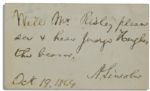 Will Mr. Risley please
see & hear Judge Hughes
the bearer,
A. Lincoln
Oct. 19, 1864